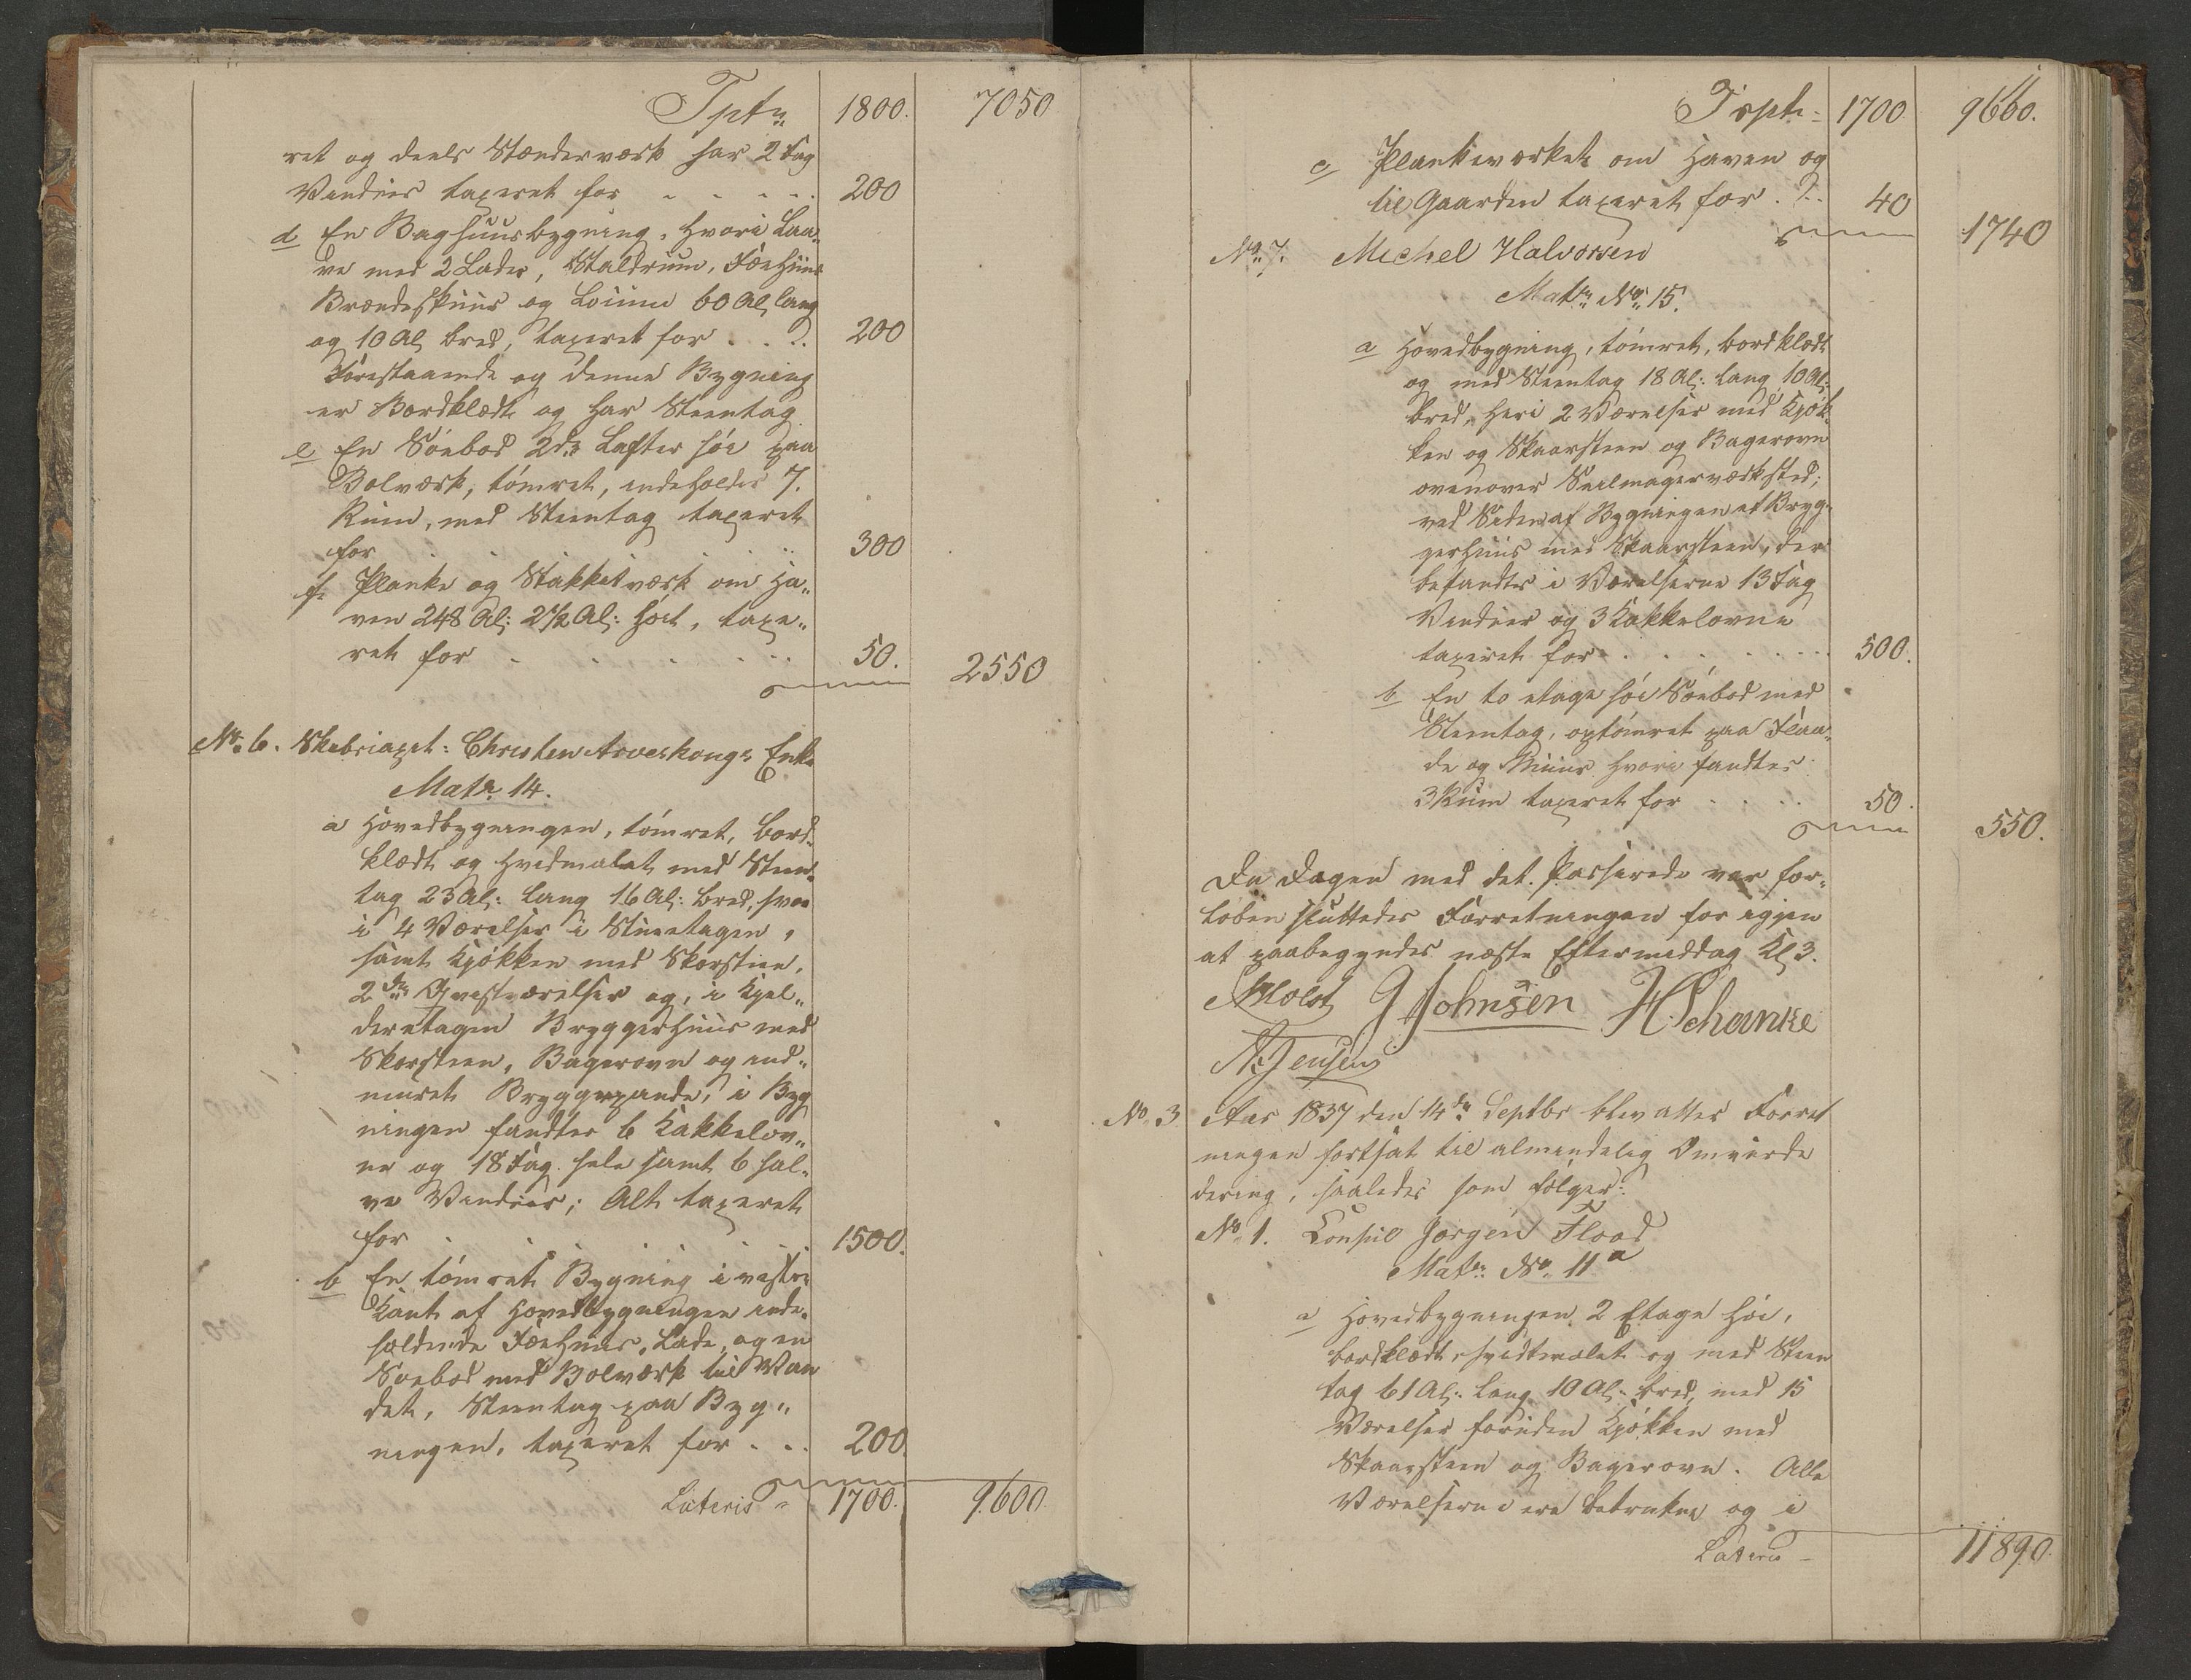 Tptr. 1800. 7050
ret og deels Stænderværk har 2 Fag
Vinduer taxeret for - - - - - 200
d En Baghuusbygning, hvori Laa„
ve med 2 Lader, Staldrum, Fæehuus
Brændeskuur og 60 Al. lang
og 10 Al. bred, taxeret for . . . 200
Forestaaende og denne Bygning
er Bordklædt og har Steentag
e En Søebod 2de Lofter høi paa
Bolværk, tømret, indeholder 7.
Rum, med Steentag taxeret
for . . . . 300
f. Planke og Stakketværk om Ha„
ven 248 Al: 2½ Al: høit, taxe„
ret for . . . . . 50. 2550
No. 6. Christen Enke
Matr. 14.
a Hovedbygningen, tømret, bord„
klædt og hvidmalet med Steen„
tag 23 Al: lang 16 Al: bred, hvor
i 4 Værelser i Stueetagen,
samt Kjøkken med Skorsteen,
2de Qvistværelser og, i Kjel„
deretagen Bryggerhuus med
Skorsteen, Bagerovn og ind„
muret Bryggepande; i Byg
ningen fandtes 6 Kakkelov„
ne og 18 Fag hele samt 6 hal„
ve Vinduer; Alt taxeret
for . . . . . 1500.
b En tømret Bygning i vestre
Kant af Hovedbygningen inde„
holdende Fæehuus, Lade, og en
Søebod med Bolværk til Van
det, Steentag paa Byg„
ningen, taxeret for . . . 200
Lateris - 1700. 9600.
Trspt: 1700 9660.
c Plankeværket om Haven og
til Gaarden taxeret for . . . 40
1740
No. 7. Michel Halvorsen
Matr. No. 15.
a Hovedbygning, tømret, bordklædt
og med Steentag 18 Al: lang 10 Al:
bred, heri 2 Værelser med Kjøk„
ken og Skaarsteen og Bagerovn
ovenover Seilmagerværksted;
ved Siden af Bygningen et Bryg„
gerhuus med Skaarsteen, der
befandtes i Værelserne 13 Fag
Vinduer og 3 Kakkelovne
taxeret for . . . . . . . 500.
b En to etage høi Søebod med
Steentag, optømret paa Flaa„
de og Muur hvori fandtes
3 Rum taxeret for . . . . 50.
550.
Da Dagen med det Passerede var for„
løben sluttedes Forretningen for igjen
at paabegyndes næste Eftermiddag Kl 3.
Holst J Johnsen H. Schanke
N. Jensen
No. 3. Aar 1837 den 14de Septbr blev atter Forret
ningen fortsat til almindelig Omvurde
dering, saaledes som følger:
No. 1. Konsul Jørgen Flood
Matr: No. 11 a
a Hovedbygningen 2 Etage høi,
bordklædt, hvidtmalet og med Steen
tag 61 Al: lang 10 Al: bred, med 15
Værelser foruden Kjøkken med
Skaarsteen og Bagerovn. Alle
Værelserne ere betrukne og i
Lateris - 11890.